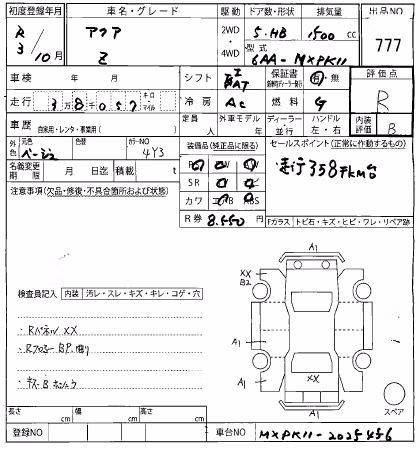 初度登録年月 車名・グレード 駆動 ドア数・形状 排気量 出品NO
R 3年 10月 アクア Z 2WD・4WD 5・HB 1500cc 777
型式 6AA-MXPK11
車検 年 月 シフト AT 保証書 有・無 評価点 R
走行 3万8千057 キロ・マイル 冷房 AC 燃料 G 内装評価 B
車歴 自家用・レンタ・事業用( ) 定員 人 外車モデル 年 ディーラー・並行 ハンドル 左・右
外色 元色 ベージュ 色替 カラーNO 4Y3 装備品(純正品に限る) セールスポイント(正常に作動するもの)
名義変更期限 月 日迄 積載 t SR 走行358FKm台
注意事項(欠品・修復・不具合箇所および状態) カワ ABS
R券 8,550 Fガラス トビ石・キズ・ヒビ・ワレ・リペア跡
A1
XX
B2
検査員記入 内装 汚レ・スレ・キズ・キレ・コゲ・穴
・Rパネル XX
A1 A1
・Rフロアー BP.曲り
XX
・キズ・Bホシュウ
A1
スペア
長さ cm 幅 cm 高さ cm
登録NO 車台NO MXPK11-2025456